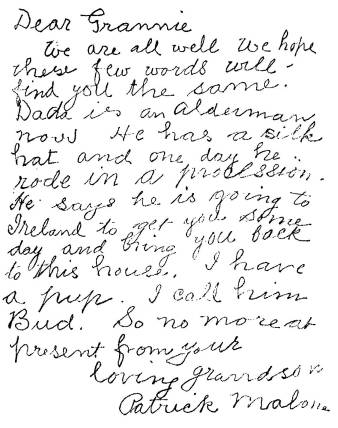 Dear Grannie
We are all well We hope
these few words will
find you the same.
Dada is an Alderman
now He has a silk
hat and one day he
rode in a procession.
He says he is going to
Ireland to get you some
day and bring you back
to this house. I have
a pup. I call him
Bud. So no more at
present from your
loving grandson
Patrick Malone